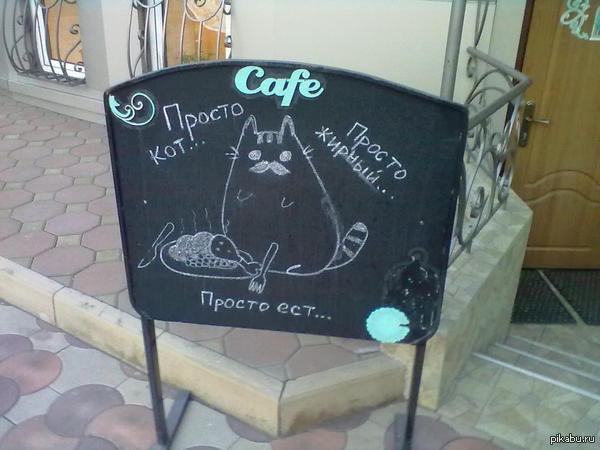 Cafe
Просто
кот...
Просто
жирный...
Просто ест...
pikabu.ru